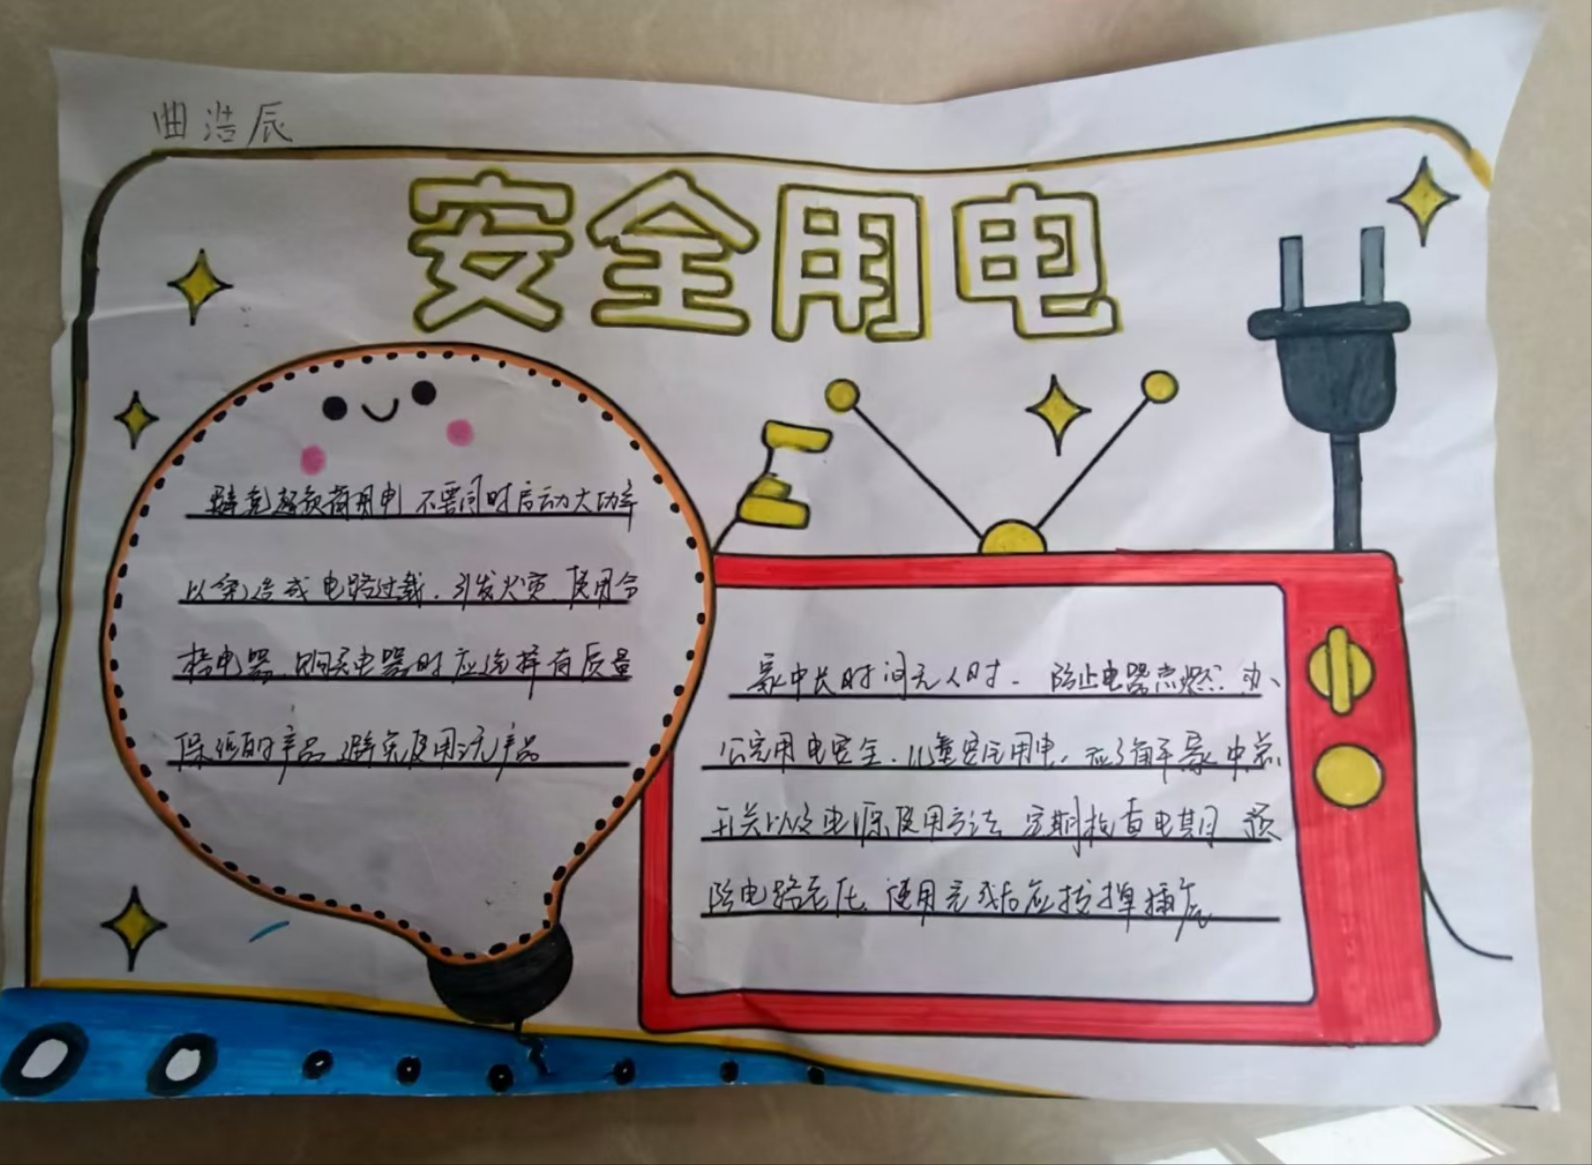 曲浩辰
安全用电
避免超负荷用电 不需同时启动大功率
以免造成电路过载.引发火灾.使用合
格电器.购买电器时应选择有质量
保证的产品 避免使用 产品
家中长时间无人时. 防止电器点燃. 办
公室用电安全.儿童安全用电.应了解家中总
开关以及电源使用方法 定期检查电 预
防电路老化.使用完成后应拔掉插座